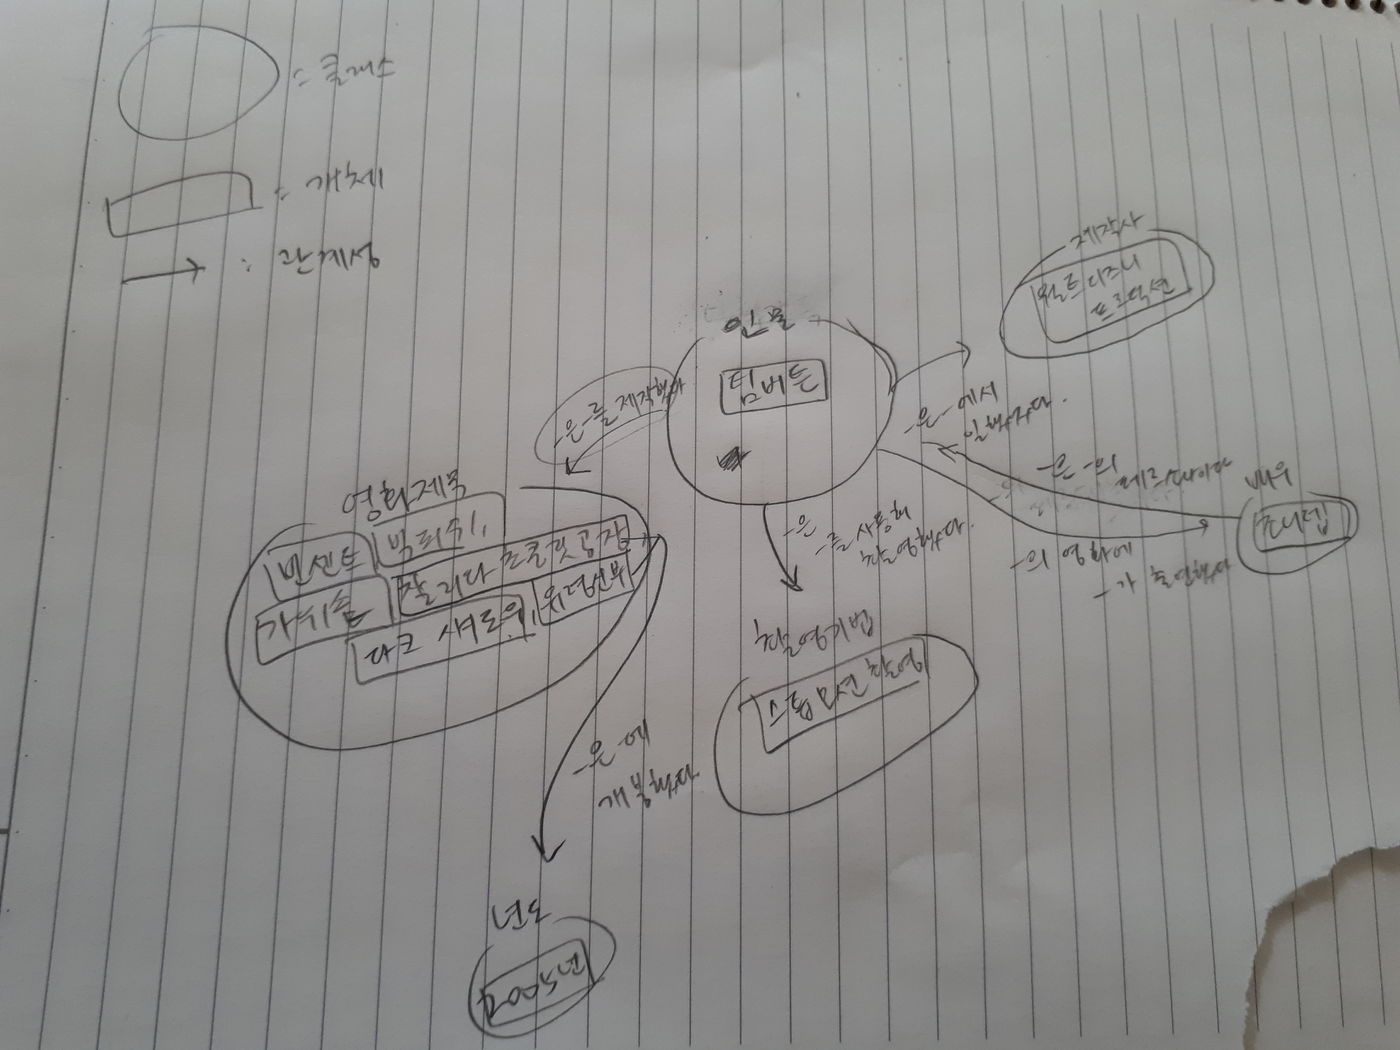 = 클래스
= 개체
: 관계성
제작사
월트디즈니
프로덕션
인물
팀버튼
-은-를 제작했다
-은-에서
일했었다.
-은-의
페르소나이다
배우
조니뎁
-의 영화에
-가 출연했다
-은
-를 사용해
촬영했다.
영화제목
빈센트
빅피쉬
찰리와 초콜릿공장
가위손
유령신부
다크 섀도우
촬영기법
스톱모션 촬영
-은-에
개봉했다
년도